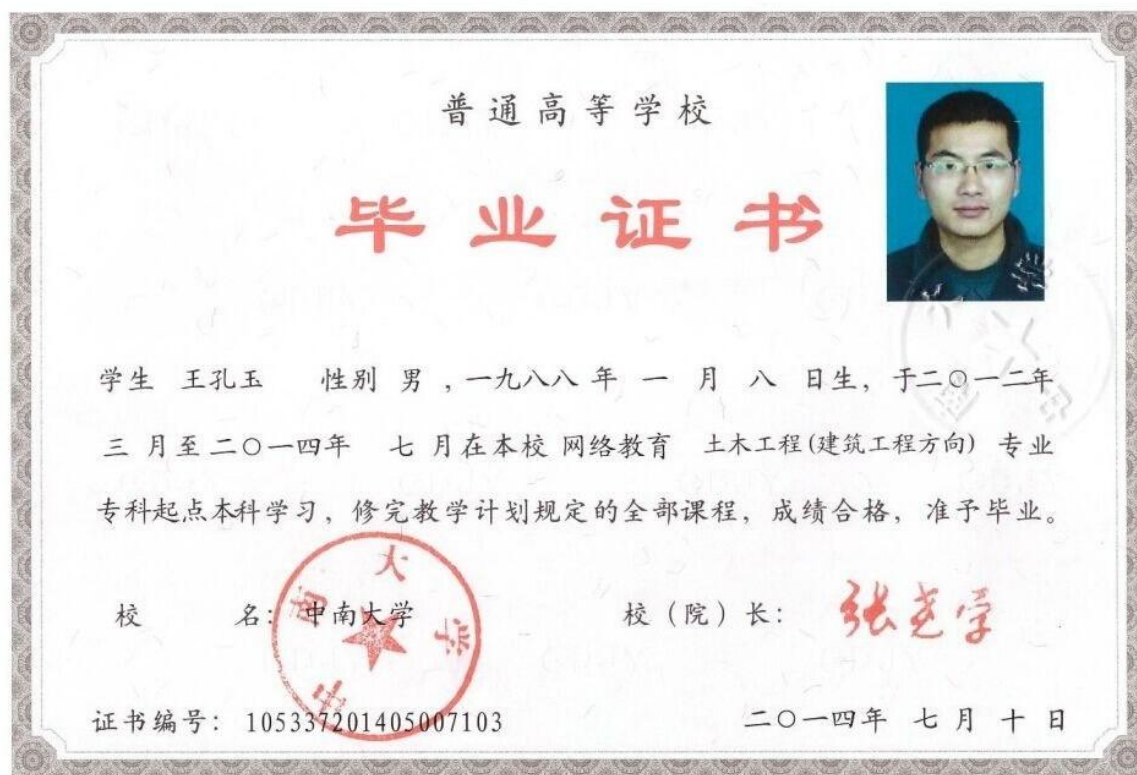 普通高等学校
毕业证书
学生 王孔玉 性别 男 ,一九八八 年 一 月 八 日生, 于二〇一二年
三 月至二〇一四年 七 月在本校 网络教育 土木工程(建筑工程方向) 专业
专科起点本科学习, 修完教学计划规定的全部课程, 成绩合格, 准予毕业。
校 名: 中南大学 校 (院) 长: 张尧学
中南大学
证书编号: 105337201405007103 二〇一四年 七 月 十 日